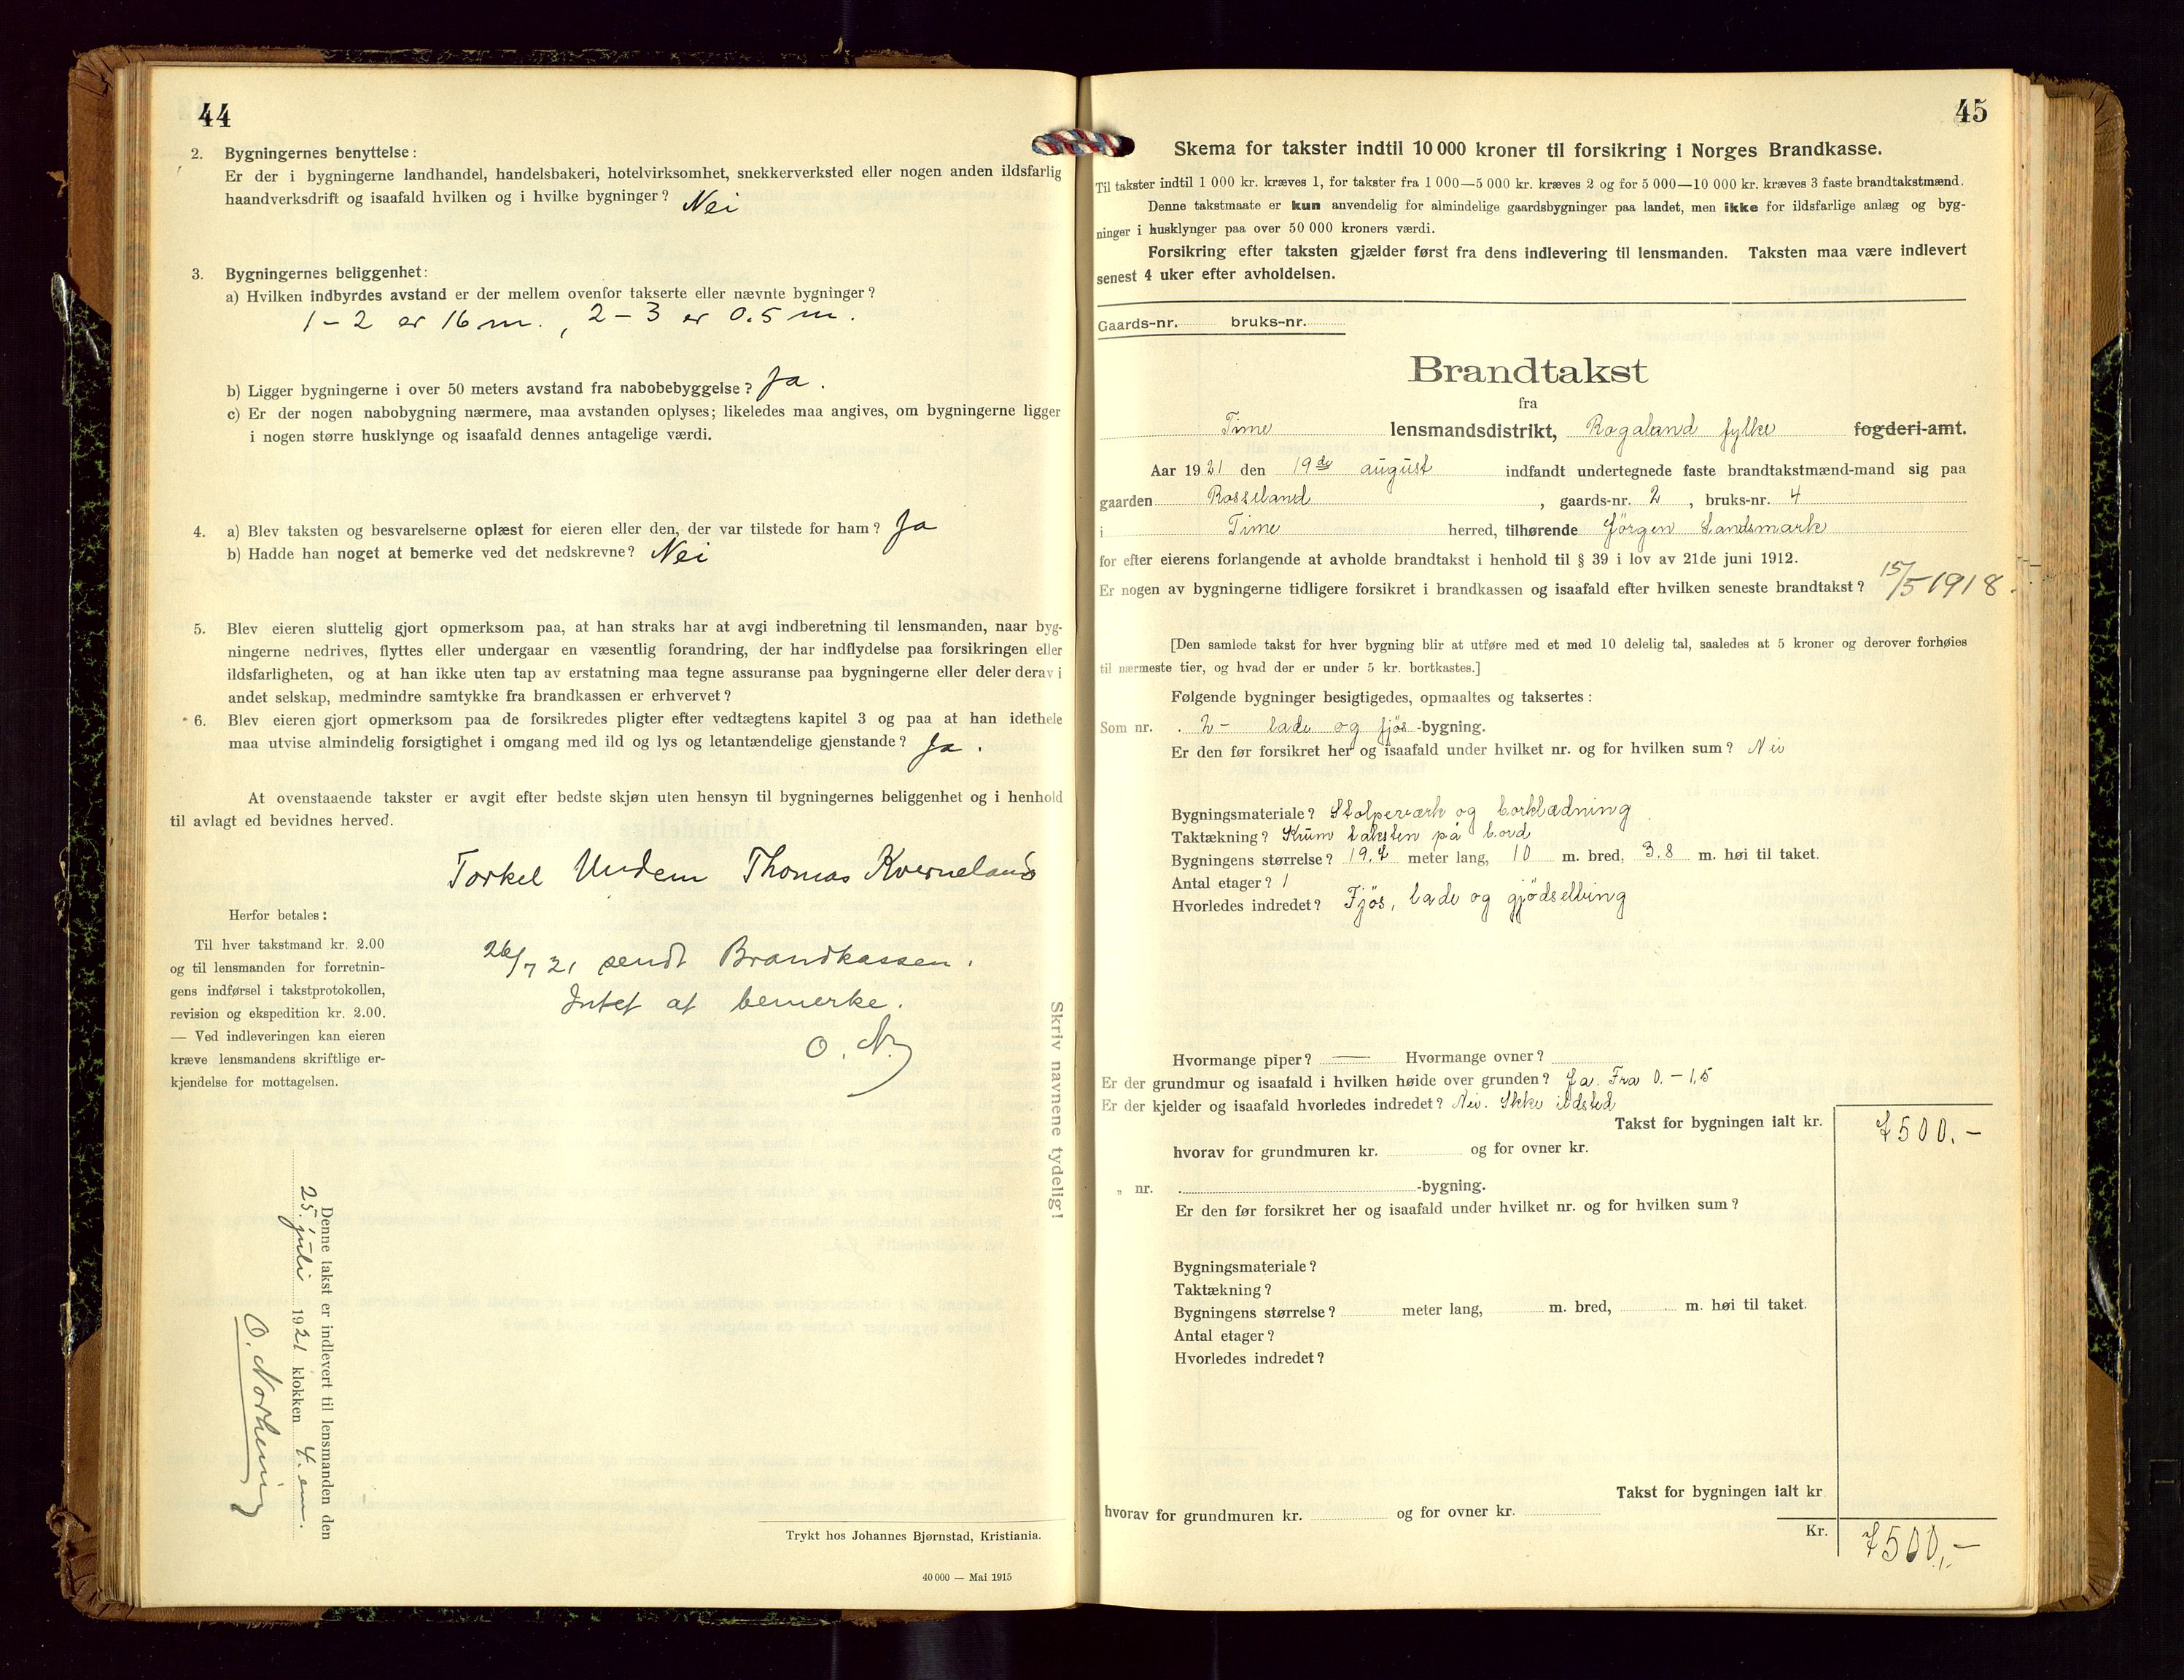 44
2. Bygningernes benyttelse:
Er der i bygningerne landhandel, handelsbakeri, hotelvirksomhet, snekkerverksted eller nogen anden ildsfarlig
haandverksdrift og isaafald hvilken og i hvilke bygninger? Nei
3. Bygningernes beliggenhet:
a) Hvilken indbyrdes avstand er der mellem ovenfor takserte eller nævnte bygninger?
1 - 2 er 16 m. , 2 - 3 er 0.5 m.
b) Ligger bygningerne i over 50 meters avstand fra nabobebyggelse? Ja.
c) Er der nogen nabobygning nærmere, maa avstanden oplyses; likeledes maa angives, om bygningerne ligger
i nogen større husklynge og isaafald dennes antagelige værdi.
4. a) Blev taksten og besvarelserne oplæst for eieren eller den, der var tilstede for ham? Ja
b) Hadde han noget at bemerke ved det nedskrevne? Nei
5. Blev eieren sluttelig gjort opmerksom paa, at han straks har at avgi indberetning til lensmanden, naar byg-
ningerne nedrives, flyttes eller undergaar en væsentlig forandring, der har indflydelse paa forsikringen eller
ildsfarligheten, og at han ikke uten tap av erstatning maa tegne assuranse paa bygningerne eller deler derav i
andet selskap, medmindre samtykke fra brandkassen er erhvervet?
6. Blev eieren gjort opmerksom paa de forsikredes pligter efter vedtægtens kapitel 3 og paa at han idethele
maa utvise almindelig forsigtighet i omgang med ild og lys og letantændelige gjenstande? Ja.
At ovenstaaende takster er avgit efter bedste skjøn uten hensyn til bygningernes beliggenhet og i henhold
til avlagt ed bevidnes herved.
Torkel Undem Thomas Kverneland
Herfor betales:
Til hver takstmand kr. 2.00
og til lensmanden for forretnin-
gens indførsel i takstprotokollen,
revision og ekspedition kr. 2.00.
— Ved indleveringen kan eieren
kræve lensmandens skriftlige er-
kjendelse for mottagelsen.
26/7 21 sendt Brandkassen.
Intet at bemerke.
O. N.
Skriv navnene tydelig!
Denne takst er indlevert til lensmanden den
25. juli 1921 klokken 4. em.
O. Norheim
Trykt hos Johannes Bjørnstad, Kristiania.
40 000 — Mai 1915
45
Skema for takster indtil 10 000 kroner til forsikring i Norges Brandkasse.
Til takster indtil 1 000 kr. kræves 1, for takster fra 1 000—5 000 kr. kræves 2 og for 5 000—10 000 kr. kræves 3 faste brandtakstmænd.
Denne takstmaate er kun anvendelig for almindelige gaardsbygninger paa landet, men ikke for ildsfarlige anlæg og byg-
ninger i husklynger paa over 50 000 kroners værdi.
Forsikring efter taksten gjælder først fra dens indlevering til lensmanden. Taksten maa være indlevert
senest 4 uker efter avholdelsen.
Gaards-nr. bruks-nr.
Brandtakst
fra
Time lensmandsdistrikt, Rogaland fylke fogderi-amt.
Aar 1921 den 19de august indfandt undertegnede faste brandtakstmænd-mand sig paa
gaarden Rosseland, gaards-nr. 2, bruks-nr. 4
i Time herred, tilhørende Jörgen Landsmark
for efter eierens forlangende at avholde brandtakst i henhold til § 39 i lov av 21de juni 1912.
Er nogen av bygningerne tidligere forsikret i brandkassen og isaafald efter hvilken seneste brandtakst? 15/5 1918.
[Den samlede takst for hver bygning blir at utføre med et med 10 delelig tal, saaledes at 5 kroner og derover forhøies
til nærmeste tier, og hvad der er under 5 kr. bortkastes.]
Følgende bygninger besigtigedes, opmaaltes og taksertes:
Som nr. 2 - lade og fjös -bygning.
Er den før forsikret her og isaafald under hvilket nr. og for hvilken sum? Nei
Bygningsmateriale? Stolpeværk og borklædning
Taktækning? Krum taksten på bord
Bygningens størrelse? 19,7 meter lang, 10 m. bred, 3.8 m. høi til taket.
Antal etager? 1
Hvorledes indredet? Fjös, lade og gjödselbing
Hvormange piper? — Hvormange ovner?
Er der grundmur og isaafald i hvilken høide over grunden? Ja. Fra 0. - 1,5
Er der kjelder og isaafald hvorledes indredet? Nei. Ikke ildsted
Takst for bygningen ialt kr. 7500.-
hvorav for grundmuren kr. og for ovner kr.
„ nr. -bygning.
Er den før forsikret her og isaafald under hvilket nr. og for hvilken sum?
Bygningsmateriale?
Taktækning?
Bygningens størrelse? meter lang, m. bred, m. høi til taket.
Antal etager?
Hvorledes indredet?
Takst for bygningen ialt kr
hvorav for grundmuren kr. og for ovner kr.
Kr. 7500,-